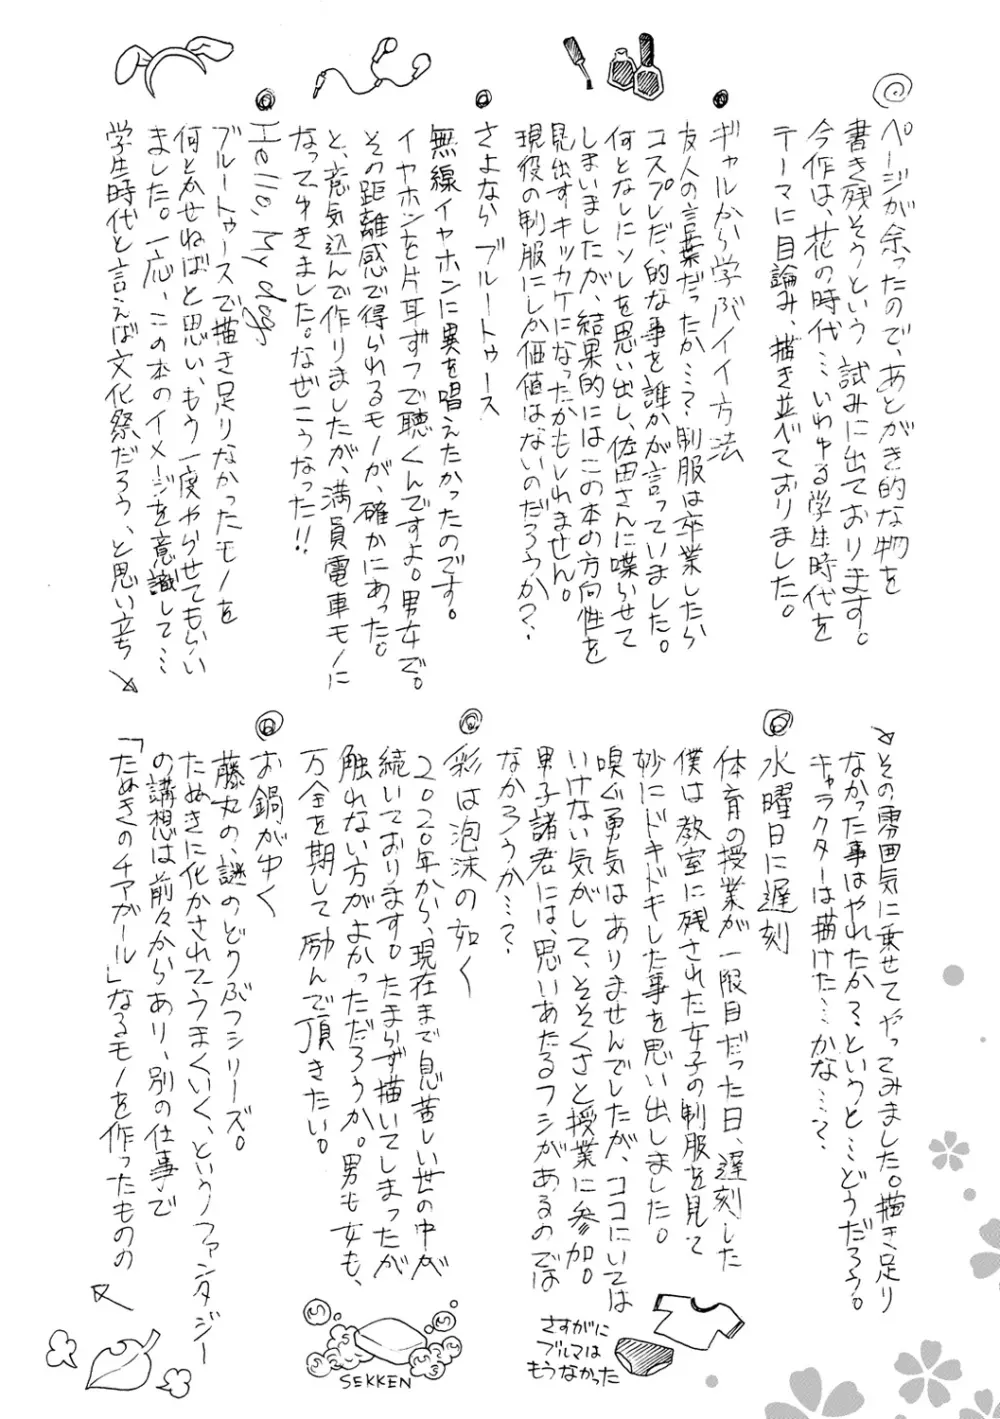 ページが余ったので、あとがき的な物を
書き残そうという、試みに出ております。
今作は、花の時代…いわゆる学生時代を
テーマに目論み、描き並べておりました。
ギャルから学ぶイイ方法
友人の言葉だったか…?制服は卒業したら
コスプレだ、的な事を誰かが言っていました。
何となしにソレを思い出し、佐田さんに喋らせて
しまいましたが、結果的にはこの本の方向性を
見出すキッカケになったかもしれません。
現役の制服にしか価値はないのだろうか?
さよならブルートゥース
無線イヤホンに異を唱えたかったのです。
イヤホンを片耳ずつで聴くんですよ。男女で。
その距離感で得られるモノが、確かにあった。
と、意気込んで作りましたが、満員電車モノに
なってゆきました。なぜこうなった!!
Hello, My dog.
ブルートゥースで描き足りなかったモノを
何とかせねばと思い、もう一度やらせてもらい
ました。一応、この本のイメージを意識して…
学生時代と言えば文化祭だろう、と思い立ち
その雰囲気に乗せてやってみました。描き足り
なかった事はやれたか?、というと…どうだろう。
キャラクターは描けた…かな…?
水曜日に遅刻
体育の授業が一限目だった日、遅刻した
僕は教室に残された女子の制服を見て
妙にドキドキした事を思い出しました。
嗅ぐ勇気はありませんでしたが、ココにいては
いけない気がして、そそくさと授業に参加。
男子諸君には、思いあたるフシがあるのでは
なかろうか…?
さすがに
ブルマは
もうなかった
彩は泡沫の如く
2020年から、現在まで息苦しい世の中が
続いております。たまらず描いてしまったが
触れない方がよかっただろうか。男も女も、
万全を期して励んで頂きたい。
SEKKEN
お鍋がゆく
藤丸の、謎のどうぶつシリーズ。
たぬきに化かされてうまくいく、というファンタジー
の講想は前々からあり、別の仕事で
「たぬきのチアガール」なるモノを作ったものの